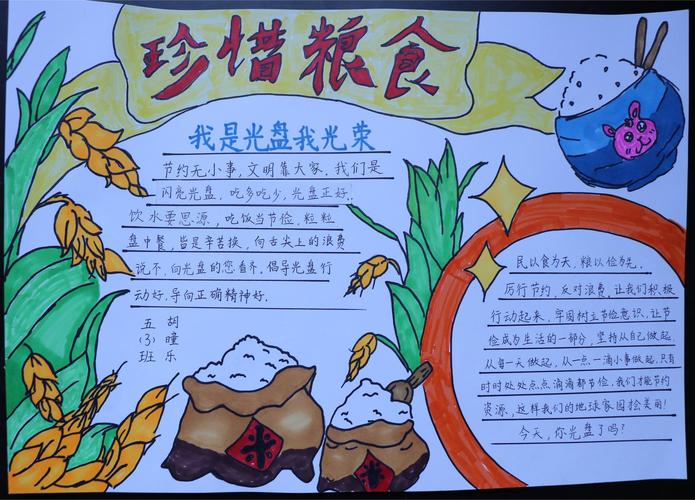 珍惜粮食
我是光盘我光荣
节约无小事,文明靠大家,我们是
闪亮光盘,吃多吃少,光盘正好.
饮水要思源,吃饭当节俭,粒粒
盘中餐,皆是辛苦换,向舌尖上的浪费
说不,向光盘的您看齐,倡导光盘行
动好,导向正确精神好.
五 胡
(3) 瞳
班 乐
米
米
民以食为天,粮以俭为先.
厉行节约,反对浪费,让我们积极
行动起来,牢固树立节俭意识,让节
俭成为生活的一部分,坚持从自己做起,
从每一天做起,从一点一滴小事做起,只有
时时处处点点滴滴都节俭,我们才能节约
资源,这样我们的地球家园才会美丽!
今天,你光盘了吗?